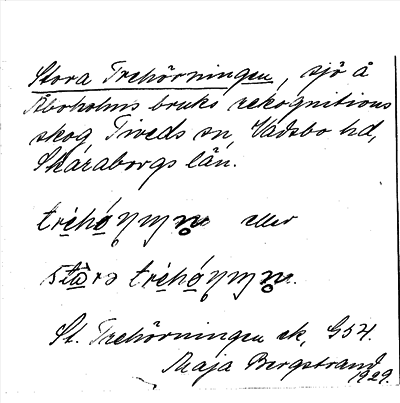 Stora Trehörningen, sjö å
Åboholms bruks rekognitions
skog Tiveds sn, Vadsbo hd,
Skaraborgs län.
eller
St. Trehörningen ek, G54.
Maja Bergstrand
1929.